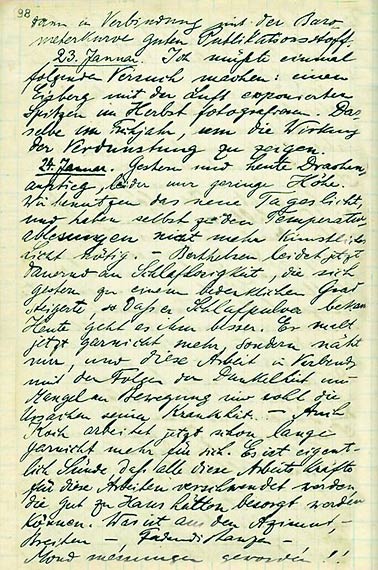 98
dann in Verbindung mit der Baro
meterkurve guten Publikationsstoff.
23. Januar. Ich müßte einmal
folgenden Versuch machen: einen
Eisberg mit der Luft exponierten
Spitzen im Herbst fotografieren. Das
selbe im Frühjahr, um die Wirkung
der Verdunstung zu zeigen.
24. Januar. Gestern und heute Drachen
aufstieg, leider nur geringe Höhe.
Wir benutzen das neue Tageslicht,
und haben selbst zu den Temperatur
ablesungen nicht mehr künstliches
Licht nötig. Berthelsen leidet jetzt
dauernd an Schlaflosigkeit, die sich
gestern zu einem bedenklichen Grad
steigerte, so daß er Schlafpulver bekam
Heute geht es ihm besser. Er malt
jetzt garnicht mehr, sondern näht
nur, und diese Arbeit in Verbindg
mit den Folgen der Dunkelheit und
Mangel an Bewegung wie soll die
Ursachen seiner Krankheit. — Auch
Koch arbeitet jetzt schon lange
garnicht mehr für sich. Es ist eigent-
lich Sünde, daß alle diese Arbeitskräfte
für diese Arbeiten verschwendet werden
die gut zu Haus hätten besorgt werden
können. Was ist aus den Azimut,-
Strecken — Fadendistanz —
Mond messungen geworden !!